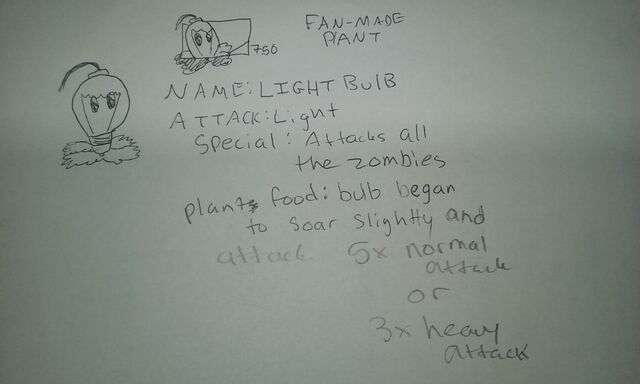 FAN-MADE
PLANT
750
NAME: LIGHT BULB
ATTACK: Light
Special: Attacks all
the zombies
plants food: bulb began
to soar slightly and
attack 5x normal
attack
or
3x heavy
attack